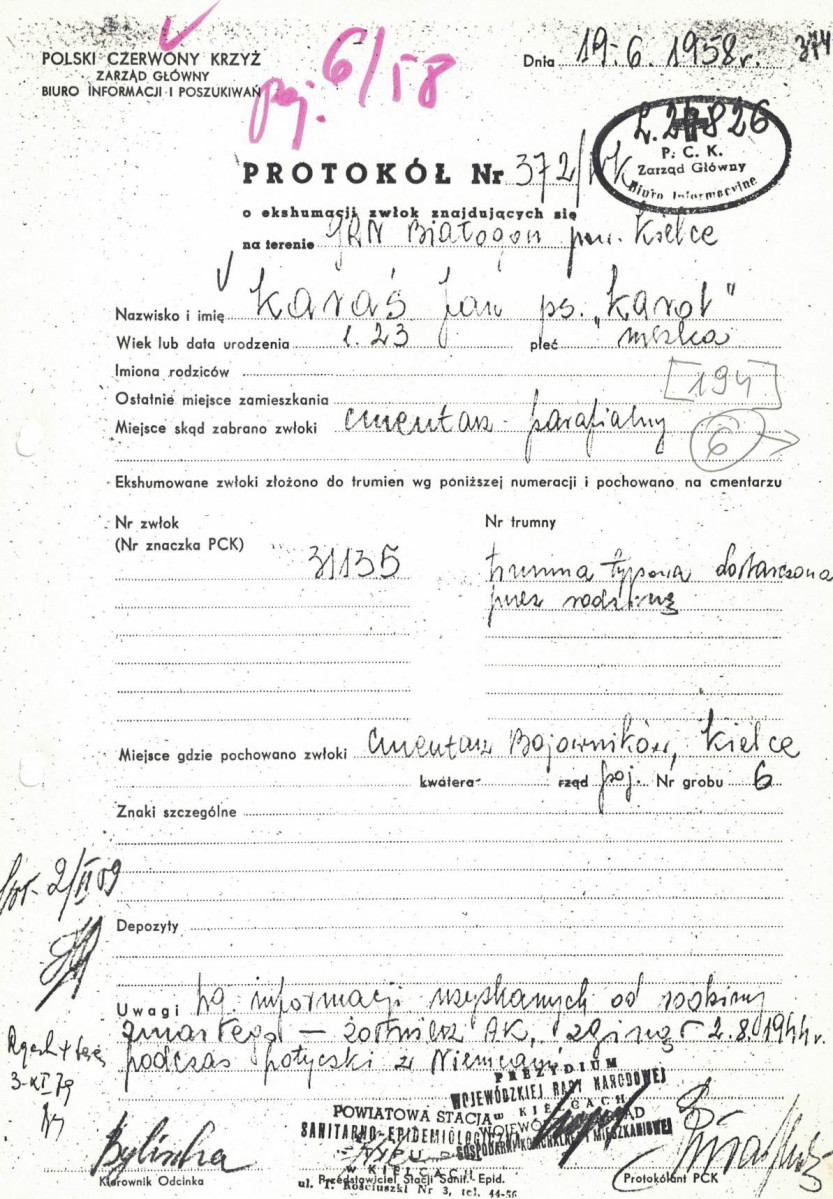 POLSKI CZERWONY KRZYŻ
ZARZĄD GŁÓWNY
BIURO INFORMACJI I POSZUKIWAŃ
poj. 6/58
Dnia 19.6.1958r. 374
L. 27826
P. C. K.
Zarząd Główny
Biuro Informacyjne
PROTOKÓŁ Nr 372/WK
o ekshumacji zwłok znajdujących się
na terenie GRN Białogon pow. Kielce
Nazwisko i imię Karaś Jan ps. „Karol"
Wiek lub data urodzenia l. 23 płeć męska
Imiona rodziców
[194]
Ostatnie miejsce zamieszkania
Miejsce skąd zabrano zwłoki cmentarz parafialny
6
Ekshumowane zwłoki złożono do trumien wg poniższej numeracji i pochowano na cmentarzu
Nr zwłok
(Nr znaczka PCK)
Nr trumny
31135
trumna typowa dostarczona
przez rodzinę
Miejsce gdzie pochowano zwłoki Cmentarz Bojowników, Kielce
kwatera rząd poj. Nr grobu 6
Znaki szczególne
Depozyty
Uwagi wg informacji uzyskanych od rodziny
zmarłego — żołnierz AK, zginął 2.8.1944r.
podczas potyczki z Niemcami
3-XI 79
PREZYDIUM
WOJEWÓDZKIEJ RADY NARODOWEJ
w KIELCACH
GOSPODARKI KOMUNALNEJ I MIESZKANIOWEJ
POWIATOWA STACJA
SANITARNO-EPIDEMIOLOGICZNA
W KIELCACH
ul. T. Kościuszki Nr 3, tel. 44-56
Kierownik Odcinka
Przedstawiciel Stacji Sanit.-Epid.
Protokólant PCK